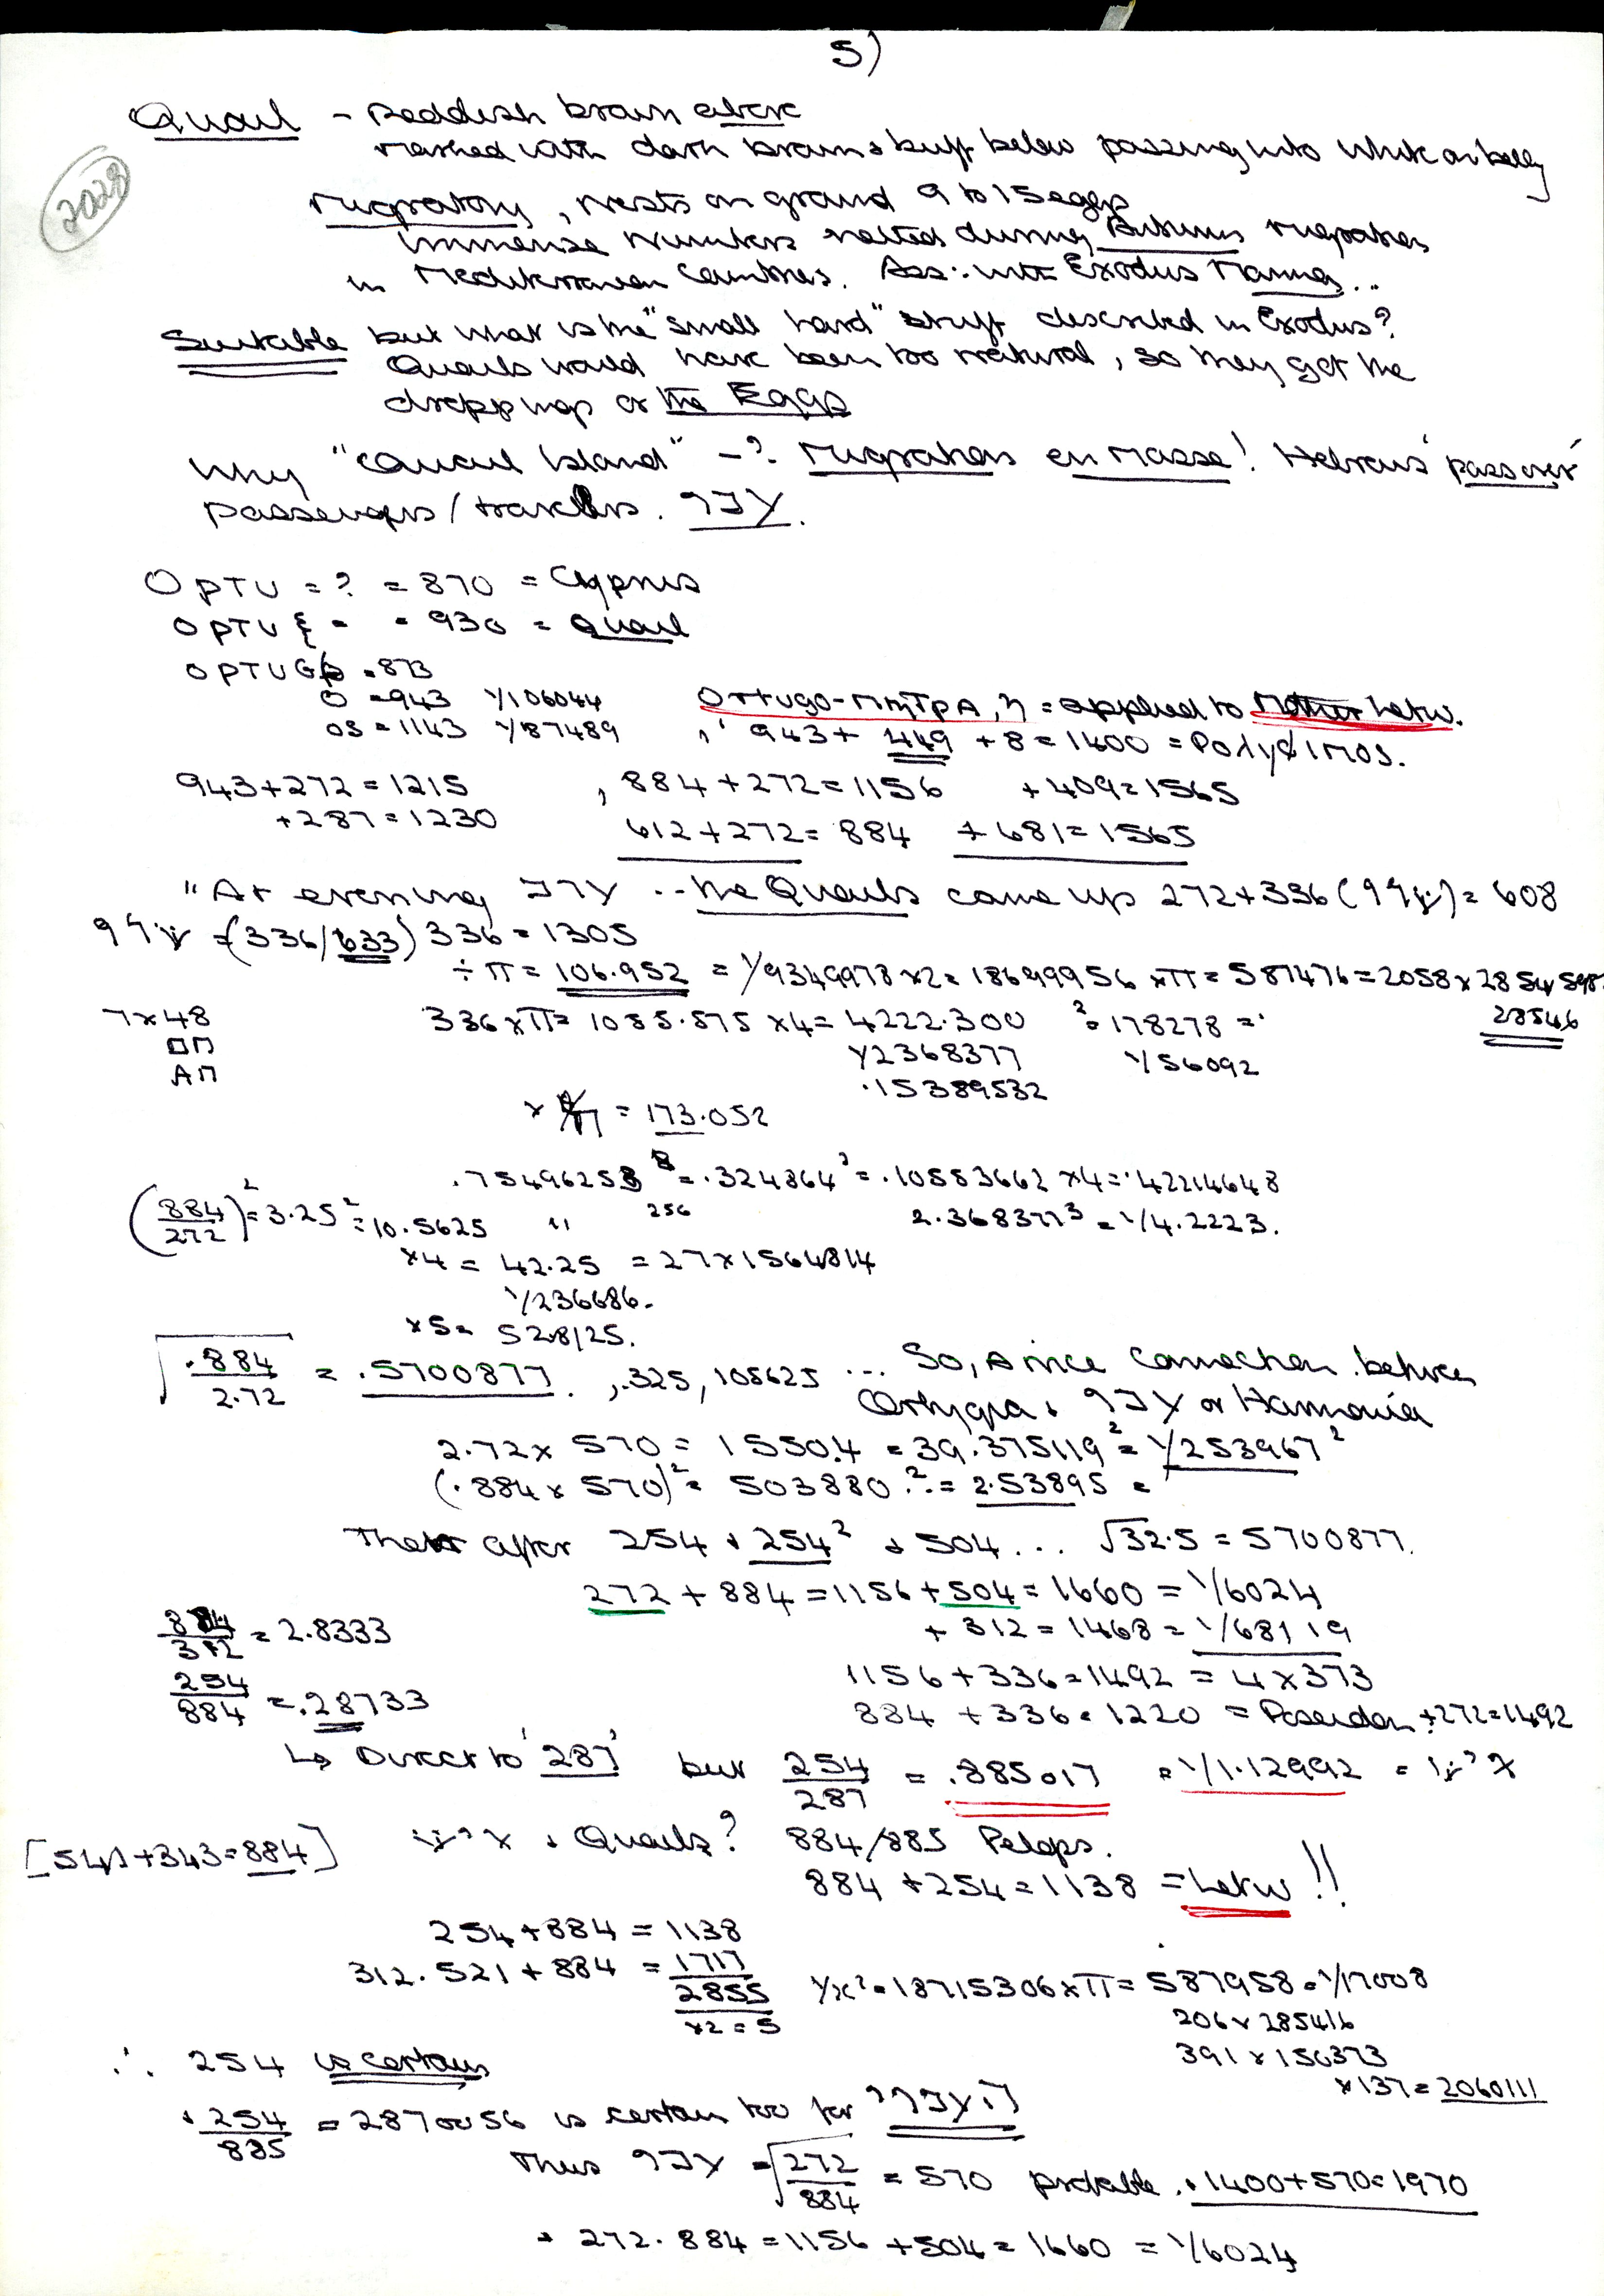 5)
Quail - Reddish brown above
marked with dark brown & buff below passing into white on belly
2028
Migratory, nests on ground 9 to 15 eggs
immense numbers netted during Autumn migration
in Mediterranean Countries. Ass: with Exodus Manna..
Suitable but what is the "small hard" stuff described in Exodus?
Quails would have been too natural, so they get the
droppings or the Eggs
Why "Quail Island" -? Migration en masse! Hebrews 'pass over'
passengers / travellers. רבע.
OρTU = ? = 870 = Cyprus
OρTUξ = = 930 = Quail
OρTUG = 873
O = 943 1/106044
OS = 1143 1/87489
Ortugo-mηTρA, η = applied to Mother Letw.
, 943 + 449 + 8 = 1400 = Polyφimos.
943+272=1215 , 884+272=1156 +409=1565
+287=1230 612+272=884 +681=1565
"At evening ערב .. the Quails came up 272+336 = 608
(336/633) 336 = 1305
÷ π = 106.952 = 1/9349978 x2= 18699956 xπ= 587476=2058x 28546
28546
7x48 336xπ= 1055.575 x4= 4222.300 ²= 178278 =
1/2368377 1/56092
.15389532
= 173.052
.75496258 = .324864² = .10553662 x4=.42214648
256 2.3683773 = 1/4.2223.
(884/272)² = 3.25² = 10.5625 "
x4 = 42.25 = 27x1564814
1/236686.
x5= 528125.
√.884/2.72 = .5700877. ,.325, 105625 ... So, A nice connection between
Ortygia & or Harmonia
2.72x 570 = 1550.4 = 39.375119² = 1/253967²
(.884x 570)² = 503880 ²= 2.53895 =
after 254 & 254² & 504... √32.5 = 5700877.
272 + 884 = 1156 + 504 = 1660 = 1/6024
884/312 = 2.8333 + 312 = 1468 = 1/68119
254/884 = .28733 1156+336=1492 = 4x373
884 +336=1220 = Poseidon +272=1492
↳ Direct to '287' but 254/287 = .885017 = 1/1.12992
[541+343=884] & Quails? 884/885 Pelops.
884 +254=1138 = Letw !!
254+884 = 1138
312.521+884 = 1717
2855 1/x²=18715306xπ= 587958=1/17008
x2=5 206x285416
391x156373
x137= 2060111
∴ 254 is certain
& 254/885 = 2870056 is certain too for
Thus = √272/884 = 570 probable. & 1400+570=1970
& 272.884=1156 +504=1660 = 1/6024